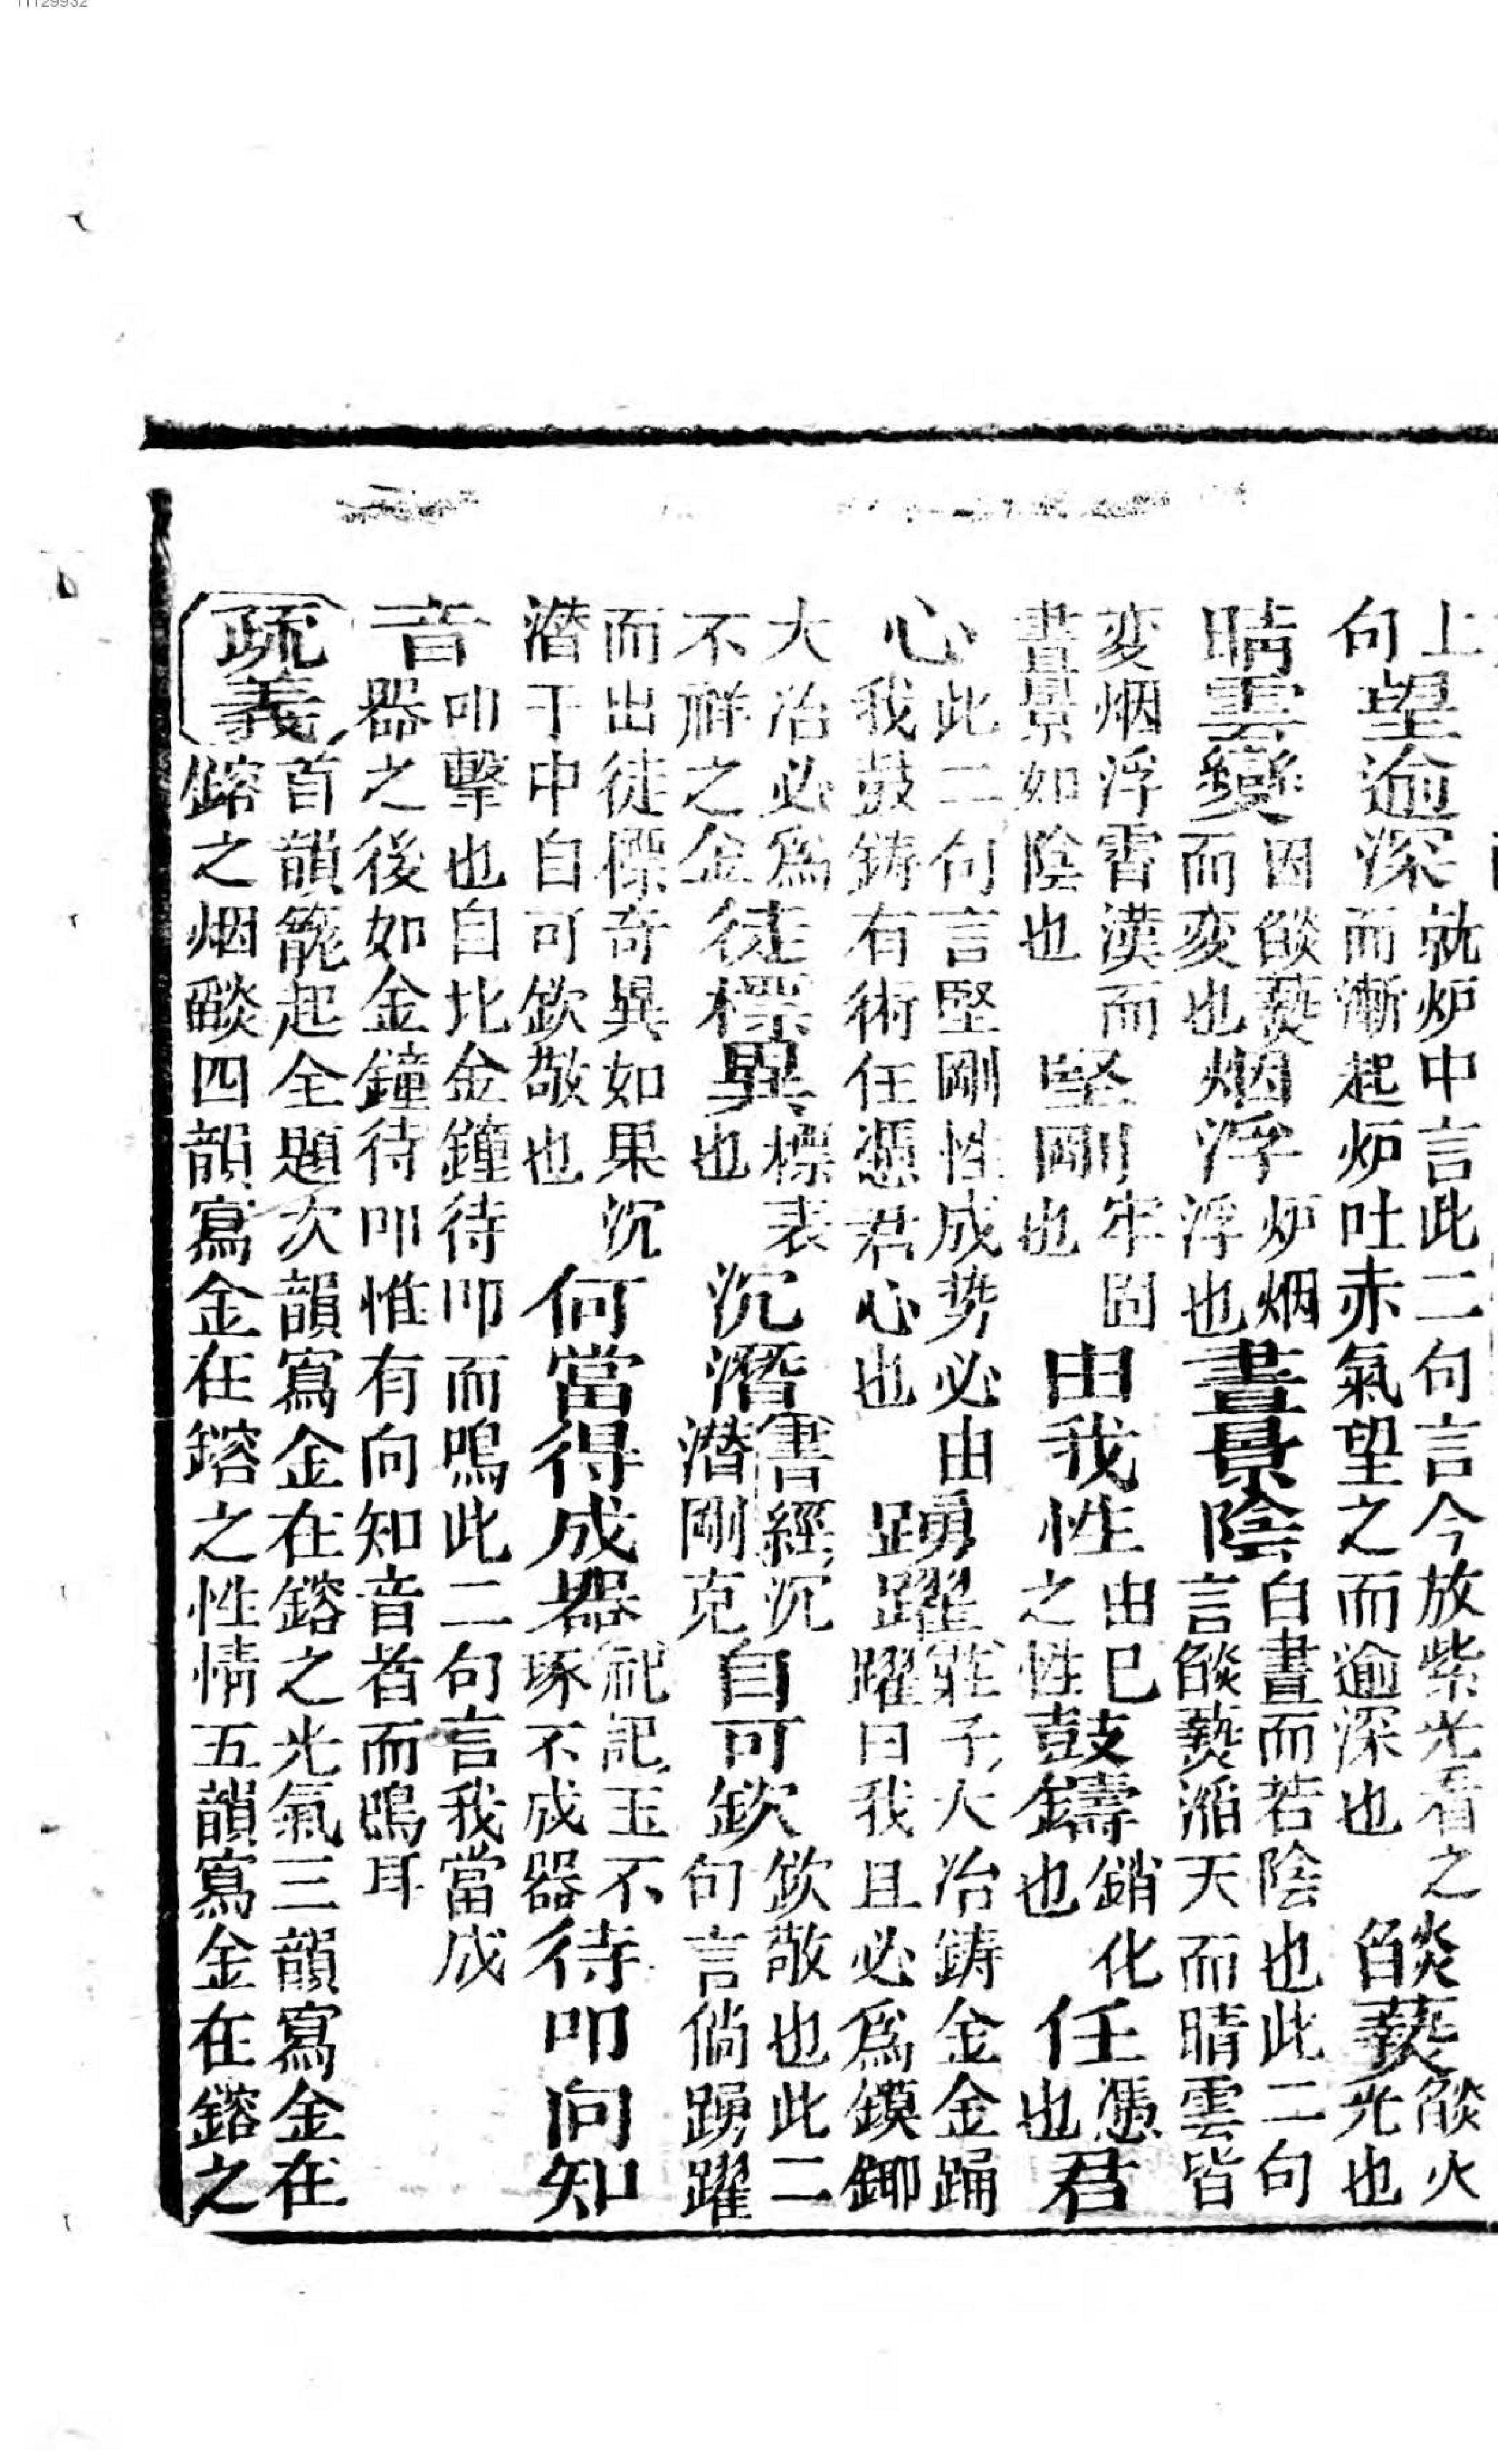 上句望逾深就炉中言此二句言今放紫光看之而漸起炉吐赤氣望之而逾深也燄爇燄火光也
晴雲變因燄爇而変也烟浮炉烟浮也晝景陰白晝而若陰也此二句言燄爇滔天而晴雲皆
変烟浮霄漢而晝景如陰也堅剛牢固也由我性由已之性鼓鑄銷化也任憑也君
心此二句言堅剛性成势必由我鼓鋳有術任憑君心也踴躍莊子大冶鋳金金踊躍曰我且必爲鏌鎁
大冶必爲不祥之金徒標異標表也沉潛書經沉潜剛克自可欽欽敬也此二句言倘踴躍
而出徒標奇異如果沉潜于中自可欽敬也何當得成器礼記玉不琢不成器待叩向知
音叩擊也自比金鐘待叩而鳴此二句言我當成器之後如金鐘待叩惟有向知音者而鳴耳
疏義首韻籠起全題次韻寫金在鎔之光氣三韻寫金在鎔之烟燄四韻寫金在鎔之性情五韻寫金在鎔之